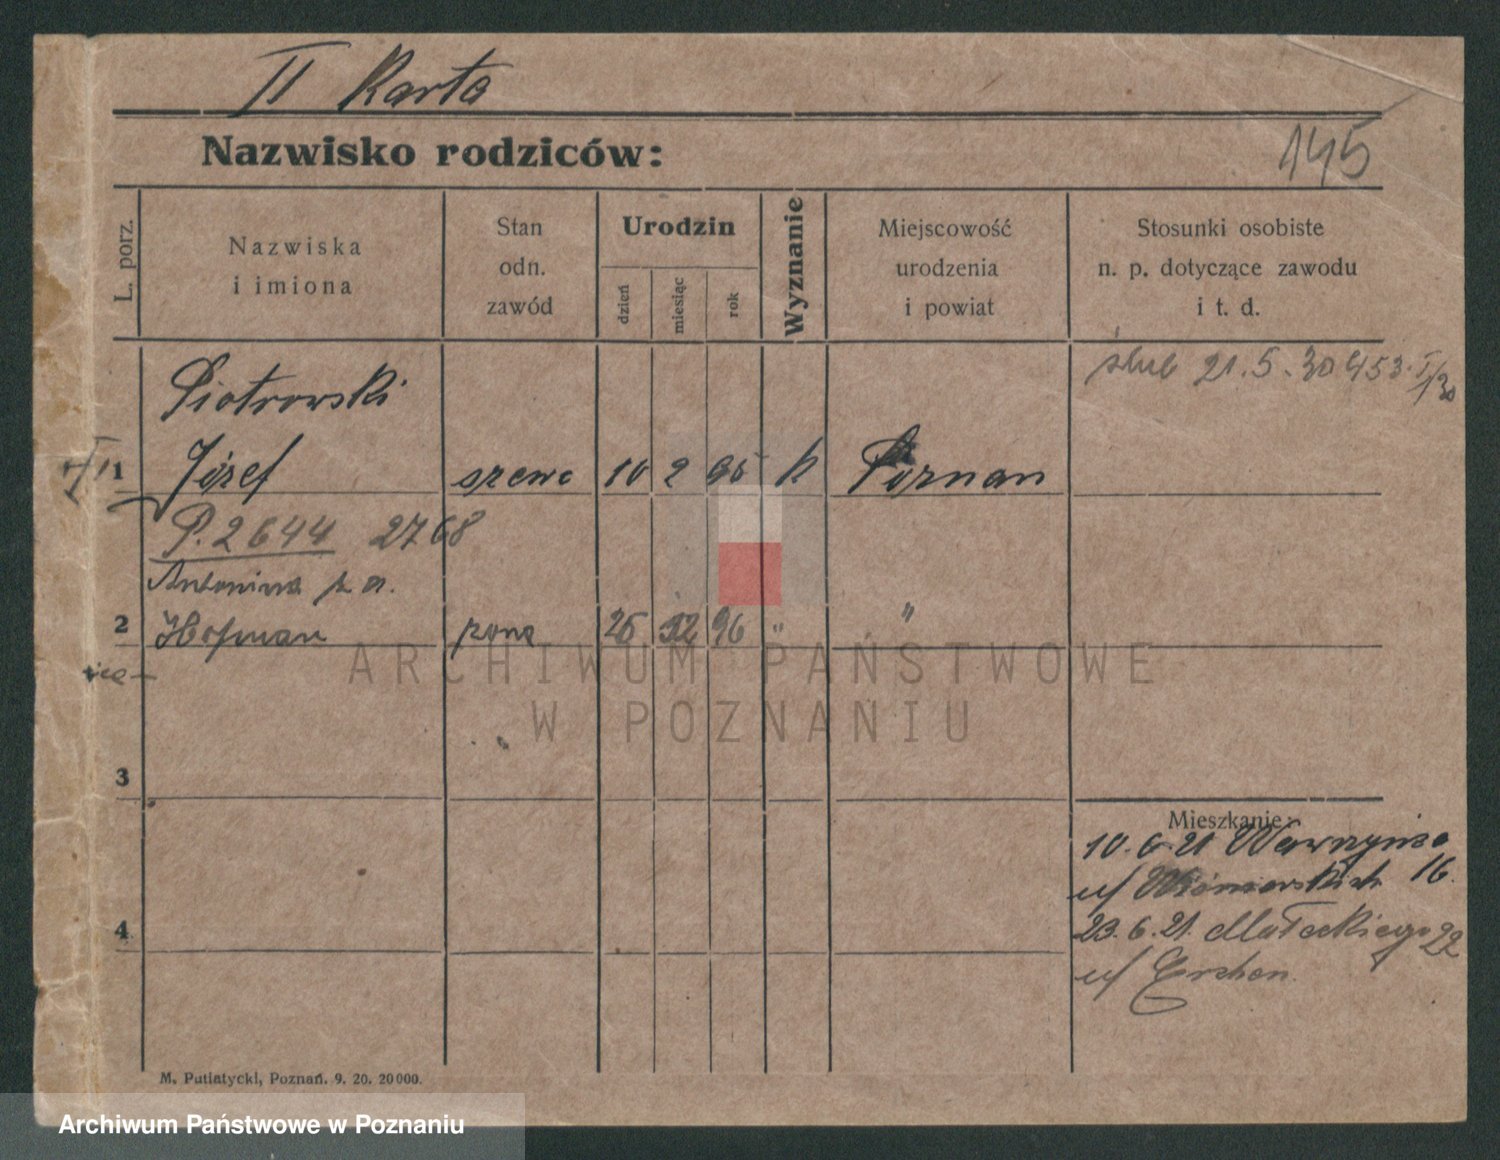 II Karta
Nazwisko rodziców:
145
L. porz.
Nazwiska
i imiona
Stan
odn.
zawód
Urodzin
dzień
miesiąc
rok
Wyznanie
Miejscowość
urodzenia
i powiat
Stosunki osobiste
n. p. dotyczące zawodu
i t. d.
ślub 21.5.30 453. I/30
Piotrowski
1 Józef szewc 10 2 k Poznan
P. 2644 2768
Antonina
2 Hofman 12 96 " "
3
4
Mieszkanie:
10.6.21 Wawrzynca
u/ 16.
23.6.21. Małeckiego 22
u/
M. Putiatycki, Poznań. 9. 20. 20000.
ARCHIWUM PAŃSTWOWE
W POZNANIU
Archiwum Państwowe w Poznaniu